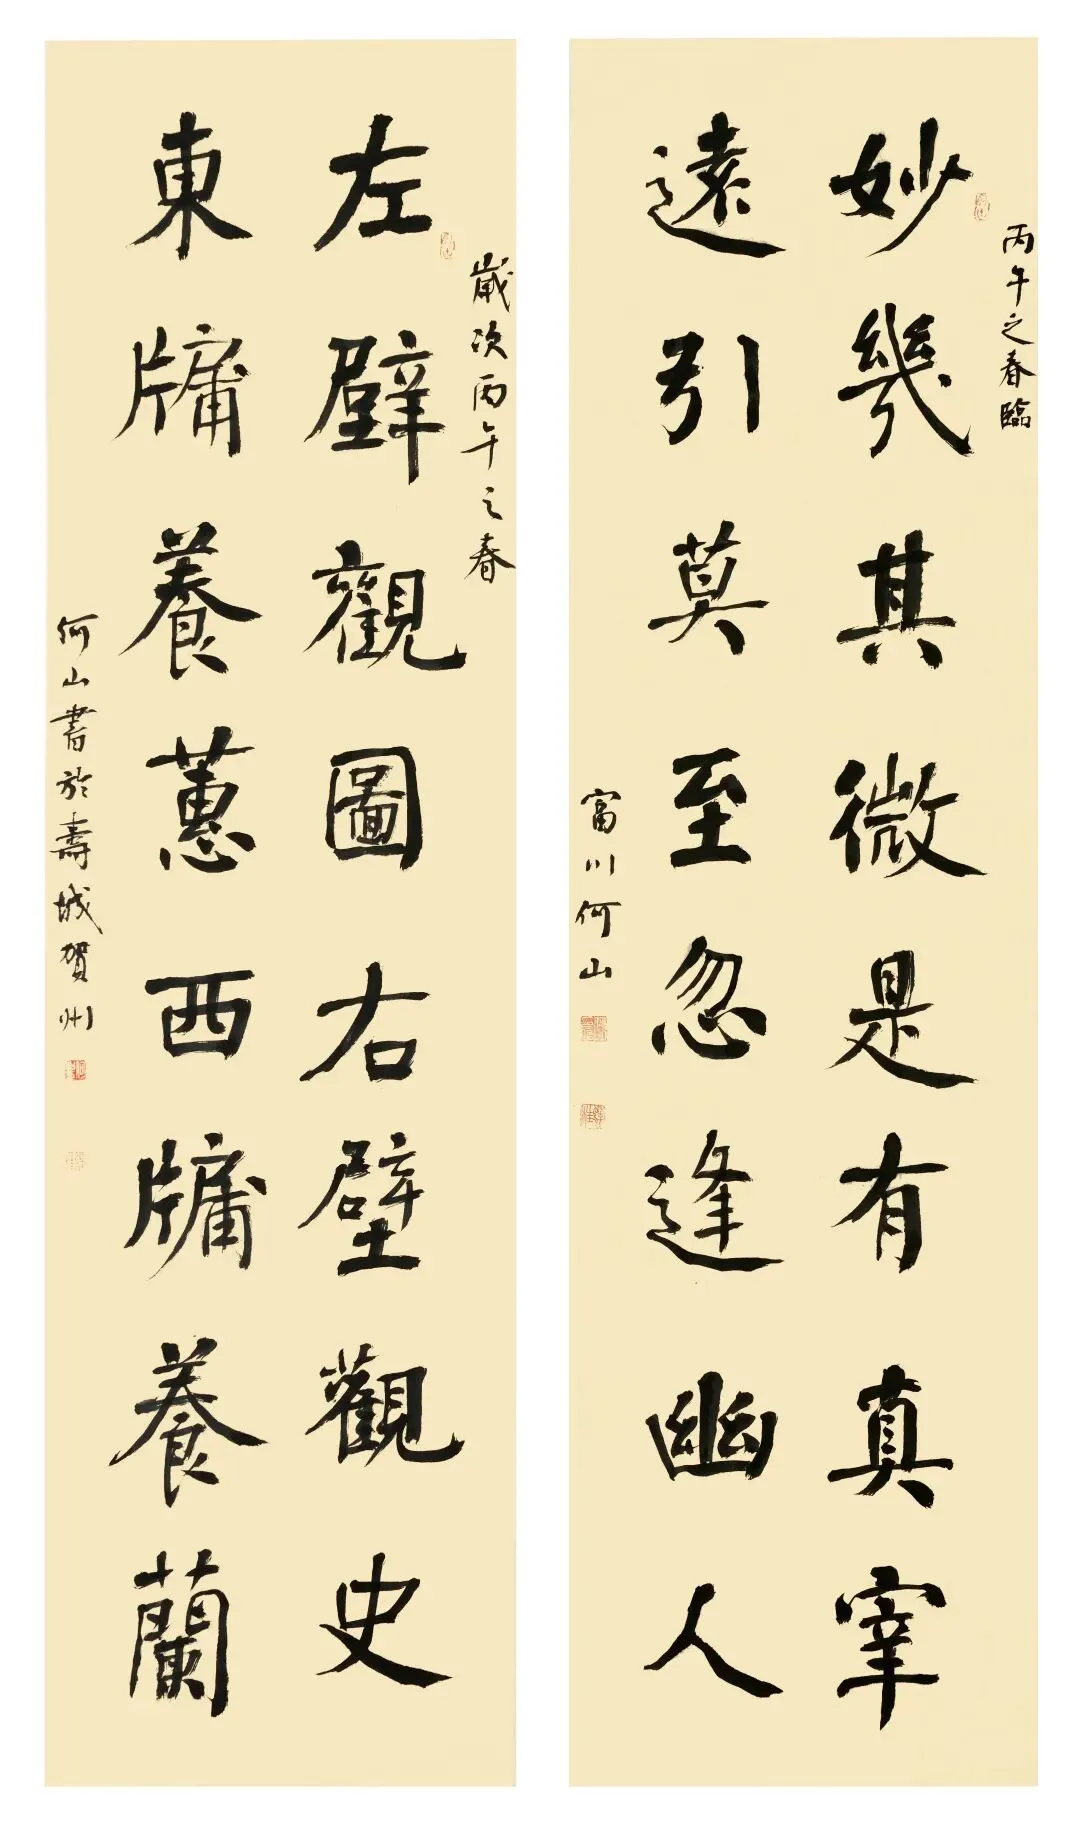 丙午之春臨
妙幾其微是有真宰
遠引莫至忽逢幽人
富川何山
歲次丙午之春
左壁觀圖右壁觀史
東牗養蕙西牗養蘭
何山書於壽城賀州